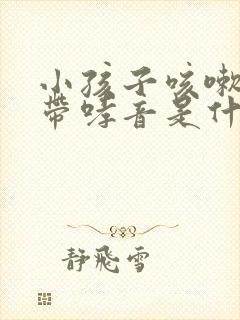 小孩子咳嗽
帶哮音是什
靜飛雪